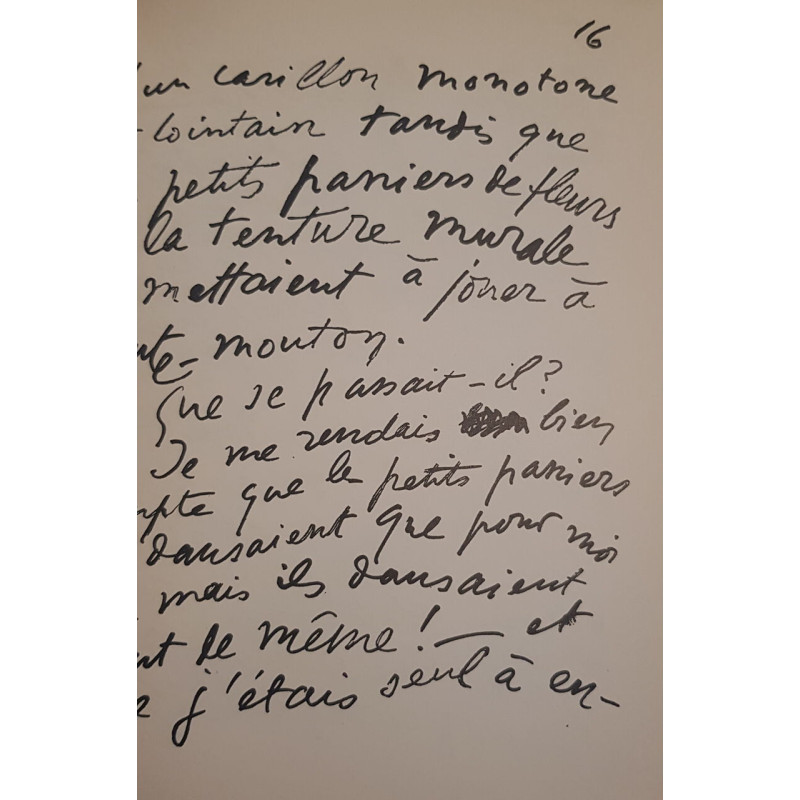 16
'un carillon monotone
lointain tandis que
petits paniers de fleurs
la tenture murale
mettaient à jouer à
ute-mouton.
Que se passait-il?
Je me rendais bien
mpte que le petits paniers
dansaient que pour moi
mais ils dansaient
nt de même! — et
e j'étais seul à en-